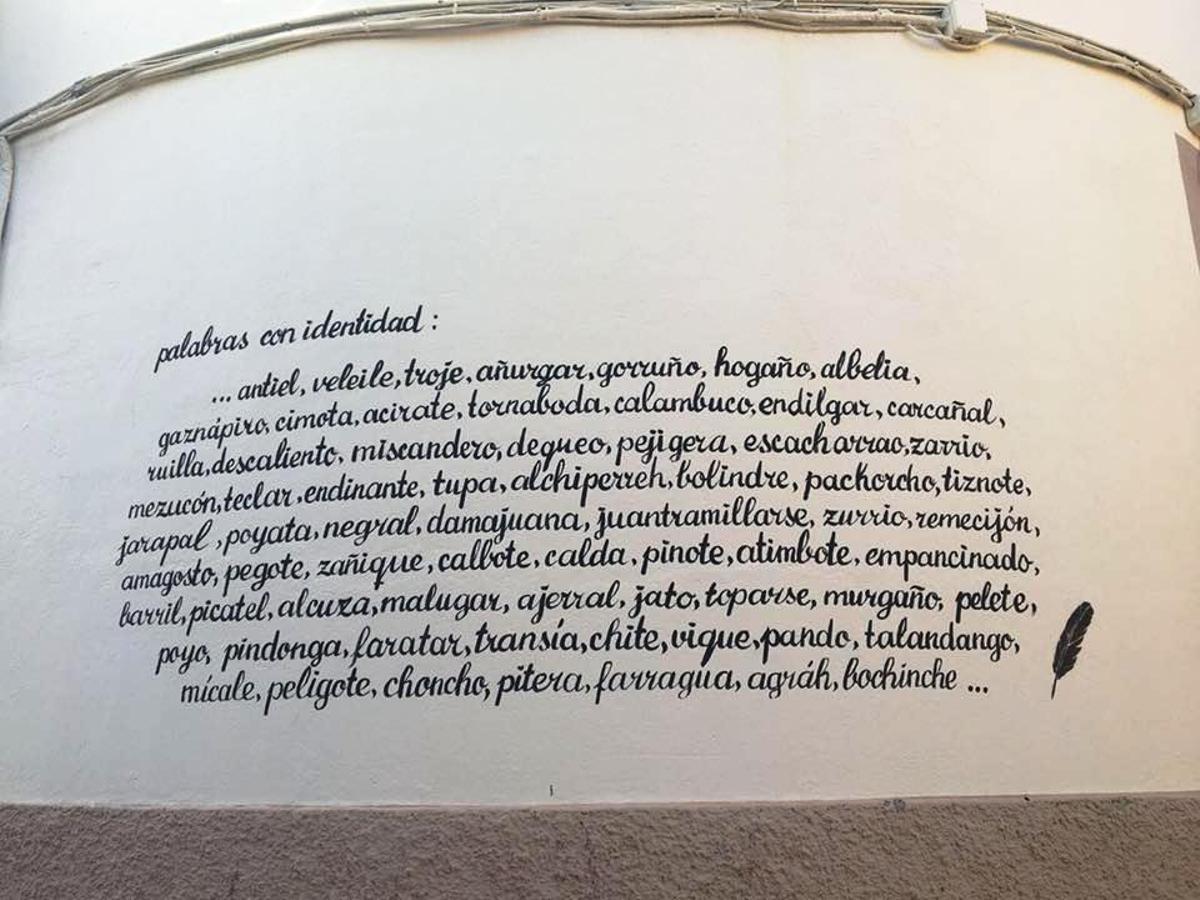 palabras con identidad :
... antiel, veleile, troje, añurgar, gorruño, hogaño, albelia,
gaznápiro, cimota, acirate, tornaboda, calambuco, endilgar, carcañal,
ruilla, descaliento, miscandero, degueo, pejigera, escacharrao, zarrio,
mezucón, teclar, endinante, tupa, alchiperreh, bolindre, pachorcho, tiznote,
jarapal, poyata, negral, damajuana, juantramillarse, zurrio, remecijón,
amagosto, pegote, zañique, calbote, calda, pinote, atimbote, empancinado,
barril, picatel, alcuza, malugar, ajerral, jato, toparse, murgaño, pelete,
poyo, pindonga, faratar, transía, chite, vique, pando, talandango,
mícale, peligote, choncho, pitera, farragúa, agráh, bochinche ...